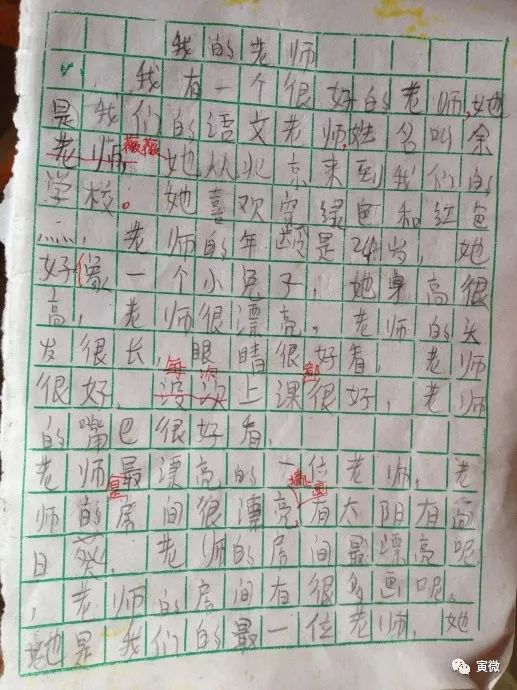 我的老师
我有一个很好的老师,她
是我们的语文老师,姓名叫余
老师薇薇她从北京来到我们的
学校。她喜欢穿绿色和红色
点,老师的年龄是24岁,她
好像一个小兔子,她身高很
高,老师很漂亮,老师的头
发很长,眼睛很好看,老师
每次 都
很好,没次上课很好,老师
的嘴巴很好看,
老师最漂亮的一位老师,老
是 墙上画
师的房间很漂亮,有太阳有向
日葵,老师的房间最漂亮呢
,老师的房间有很多画呢。
她是我们的最一位老师,她
寅微